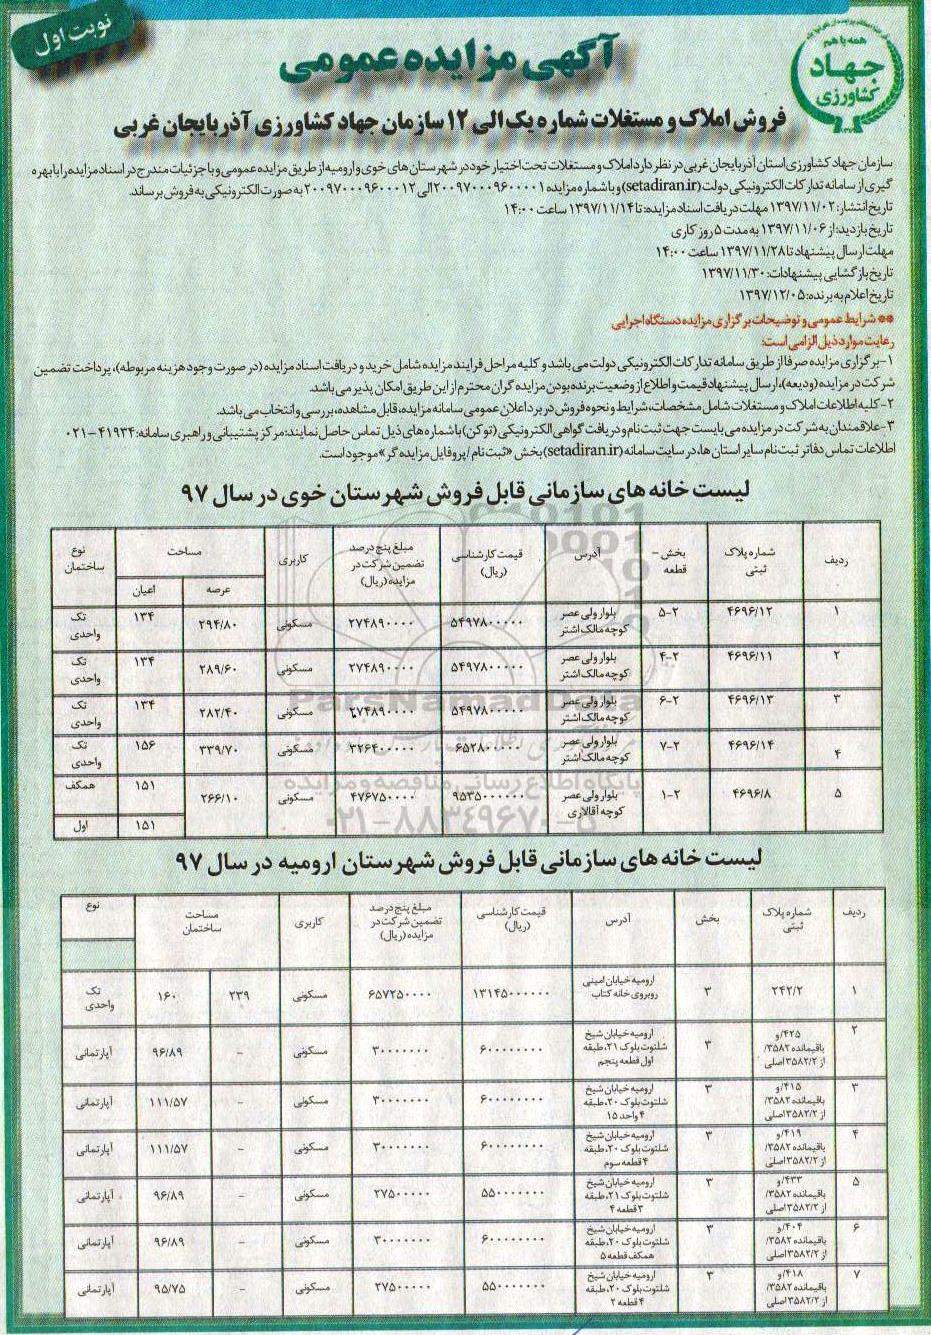 نوبت اول
همه با هم
جهاد
کشاورزی
آگهی مزایده عمومی
فروش املاک و مستغلات شماره یک الی ۱۲ سازمان جهاد کشاورزی آذربایجان غربی
سازمان جهاد کشاورزی استان آذربایجان غربی در نظر دارد املاک و مستغلات تحت اختیار خود در شهرستان های خوی و ارومیه از طریق مزایده عمومی و با جزئیات مندرج در اسناد مزایده را با بهره
گیری از سامانه تدارکات الکترونیکی دولت (setadiran.ir) و با شماره مزایده ۲۰۰۹۷۰۰۰۹۶۰۰۰۰۱ الی ۲۰۰۹۷۰۰۰۹۶۰۰۰۱۲ به صورت الکترونیکی به فروش برساند.
تاریخ انتشار: ۱۳۹۷/۱۱/۰۲ مهلت دریافت اسناد مزایده: تا ۱۳۹۷/۱۱/۱۴ ساعت ۱۴:۰۰
تاریخ بازدید: از ۱۳۹۷/۱۱/۰۶ به مدت ۵ روز کاری
مهلت ارسال پیشنهاد تا ۱۳۹۷/۱۱/۲۸ ساعت ۱۴:۰۰
تاریخ بازگشایی پیشنهادات: ۱۳۹۷/۱۱/۳۰
تاریخ اعلام به برنده: ۱۳۹۷/۱۲/۰۵
** شرایط عمومی و توضیحات برگزاری مزایده دستگاه اجرایی
رعایت موارد ذیل الزامی است:
۱- برگزاری مزایده صرفا از طریق سامانه تدارکات الکترونیکی دولت می باشد و کلیه مراحل فرایند مزایده شامل خرید و دریافت اسناد مزایده (در صورت وجود هزینه مربوطه)، پرداخت تضمین
شرکت در مزایده (ودیعه)، ارسال پیشنهاد قیمت و اطلاع از وضعیت برنده بودن مزایده گران محترم از این طریق امکان پذیر می باشد.
۲- کلیه اطلاعات املاک و مستغلات شامل مشخصات، شرایط و نحوه فروش در برد اعلان عمومی سامانه مزایده، قابل مشاهده، بررسی و انتخاب می باشد.
۳- علاقمندان به شرکت در مزایده می بایست جهت ثبت نام و دریافت گواهی الکترونیکی (توکن) با شماره های ذیل تماس حاصل نمایند: مرکز پشتیبانی و راهبری سامانه: ۴۱۹۳۴-۰۲۱
اطلاعات تماس دفاتر ثبت نام سایر استان ها، در سایت سامانه (setadiran.ir) بخش «ثبت نام / پروفایل مزایده گر» موجود است.
لیست خانه های سازمانی قابل فروش شهرستان خوی در سال ۹۷
ردیف | شماره پلاک ثبتی | بخش - قطعه | آدرس | قیمت کارشناسی (ریال) | مبلغ پنج درصد تضمین شرکت در مزایده (ریال) | کاربری | مساحت | نوع ساختمان
عرصه | اعیان
۱ | ۴۶۹۶/۱۲ | ۵-۲ | بلوار ولی عصر کوچه مالک اشتر | ۵۴۹۷۸۰۰۰۰۰ | ۲۷۴۸۹۰۰۰۰ | مسکونی | ۲۹۴/۸۰ | ۱۳۴ | تک واحدی
۲ | ۴۶۹۶/۱۱ | ۴-۲ | بلوار ولی عصر کوچه مالک اشتر | ۵۴۹۷۸۰۰۰۰۰ | ۲۷۴۸۹۰۰۰۰ | مسکونی | ۲۸۹/۶۰ | ۱۳۴ | تک واحدی
۳ | ۴۶۹۶/۱۳ | ۶-۲ | بلوار ولی عصر کوچه مالک اشتر | ۵۴۹۷۸۰۰۰۰۰ | ۲۷۴۸۹۰۰۰۰ | مسکونی | ۲۸۲/۴۰ | ۱۳۴ | تک واحدی
۴ | ۴۶۹۶/۱۴ | ۷-۲ | بلوار ولی عصر کوچه مالک اشتر | ۶۵۲۸۰۰۰۰۰۰ | ۳۲۶۴۰۰۰۰۰ | مسکونی | ۳۳۹/۷۰ | ۱۵۶ | تک واحدی
۵ | ۴۶۹۶/۸ | ۱-۲ | بلوار ولی عصر کوچه آقالاری | ۹۵۳۵۰۰۰۰۰۰ | ۴۷۶۷۵۰۰۰۰ | مسکونی | ۲۶۶/۱۰ | ۱۵۱ | همکف
۱۵۱ | اول
ParsNamadData
پایگاه اطلاع رسانی مناقصه و مزایده
۰۲۱-۸۸۳۴۹۶۷۰-۵
لیست خانه های سازمانی قابل فروش شهرستان ارومیه در سال ۹۷
ردیف | شماره پلاک ثبتی | بخش | آدرس | قیمت کارشناسی (ریال) | مبلغ پنج درصد تضمین شرکت در مزایده (ریال) | کاربری | مساحت ساختمان | نوع
۱ | ۲۴۲/۲ | ۳ | ارومیه خیابان امینی روبروی خانه کتاب | ۱۳۱۴۵۰۰۰۰۰۰ | ۶۵۷۲۵۰۰۰۰ | مسکونی | ۲۳۹ | ۱۶۰ | تک واحدی
۲ | ۴۲۵/و باقیمانده ۳۵۸۲/ از ۳۵۸۲/۲ اصلی | ۳ | ارومیه خیابان شیخ شلتوت بلوک ۲۱، طبقه اول قطعه پنجم | ۶۰۰۰۰۰۰۰۰ | ۳۰۰۰۰۰۰۰ | مسکونی | - | ۹۶/۸۹ | آپارتمانی
۳ | ۴۱۵/و باقیمانده ۳۵۸۲/ از ۳۵۸۲/۲ اصلی | ۳ | ارومیه خیابان شیخ شلتوت بلوک ۲۰، طبقه ۴ واحد ۱۵ | ۶۰۰۰۰۰۰۰۰ | ۳۰۰۰۰۰۰۰ | مسکونی | - | ۱۱۱/۵۷ | آپارتمانی
۴ | ۴۱۹/و باقیمانده ۳۵۸۲/ از ۳۵۸۲/۲ اصلی | ۳ | ارومیه خیابان شیخ شلتوت بلوک ۲۰، طبقه ۴ قطعه سوم | ۶۰۰۰۰۰۰۰۰ | ۳۰۰۰۰۰۰۰ | مسکونی | - | ۱۱۱/۵۷ | آپارتمانی
۵ | ۴۳۳/و باقیمانده ۳۵۸۲/ از ۳۵۸۲/۲ اصلی | ۳ | ارومیه خیابان شیخ شلتوت بلوک ۲۱، طبقه ۳ قطعه ۴ | ۵۵۰۰۰۰۰۰۰ | ۲۷۵۰۰۰۰۰ | مسکونی | - | ۹۶/۸۹ | آپارتمانی
۶ | ۴۰۴/و باقیمانده ۳۵۸۲/ از ۳۵۸۲/۲ اصلی | ۳ | ارومیه خیابان شیخ شلتوت بلوک ۲۰، طبقه همکف قطعه ۵ | ۶۰۰۰۰۰۰۰۰ | ۳۰۰۰۰۰۰۰ | مسکونی | - | ۹۶/۸۹ | آپارتمانی
۷ | ۴۱۸/و باقیمانده ۳۵۸۲/ از ۳۵۸۲/۲ اصلی | ۳ | ارومیه خیابان شیخ شلتوت بلوک ۲۰، طبقه ۴ قطعه ۲ | ۵۵۰۰۰۰۰۰۰ | ۲۷۵۰۰۰۰۰ | مسکونی | - | ۹۵/۷۵ | آپارتمانی